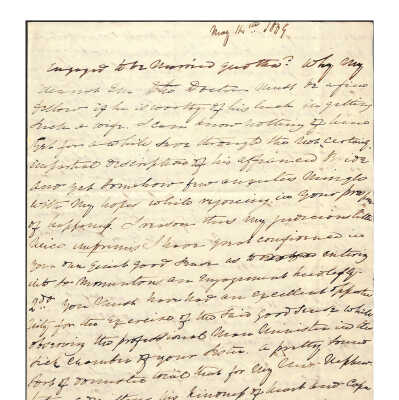 May 14th 1839
Engaged to be Married quotha? Why My
dearest the Doctor must be a fine
fellow if he is worthy of his luck in getting
such a wife. I can know nothing of him
yet for a while save through the not certainly
impartial description of his affianced Bride
And yet somehow few anguties Mingle
with My hopes while rejoicing in your prospects
of happiness. I reason thus My judicious little
niece imprimis I have great confidence in
your own quiet good Sense as to entering
into so momentous an Engagement heedlessly
2nd. You must have had an excellent opportu
nity for the Exercise of the said good Sense while
observing the professional Man Minister in the
sick chamber of your Sister. A pretty sound
sort of domestic trial that for My New Nephew
his kindness of heart and